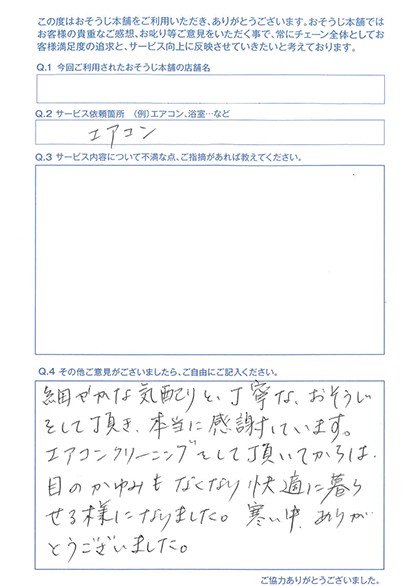 この度はおそうじ本舗をご利用いただき、ありがとうございます。おそうじ本舗では
お客様の貴重なご感想、お叱り等ご意見をいただく事で、常にチェーン全体としてお
客様満足度の追求と、サービス向上に反映させていきたいと考えております。
Q.1 今回ご利用されたおそうじ本舗の店舗名
Q.2 サービス依頼箇所 (例)エアコン、浴室…など
エアコン
Q.3 サービス内容について不満な点、ご指摘があれば教えてください。
Q.4 その他ご意見がございましたら、ご自由にご記入ください。
細やかな気配りと、丁寧な、おそうじ
をして頂き、本当に感謝しています。
エアコンクリーニングをして頂いてからは、
目のかゆみもなくなり快適に暮ら
せる様になりました。寒い中、ありが
とうございました。
ご協力ありがとうございました。